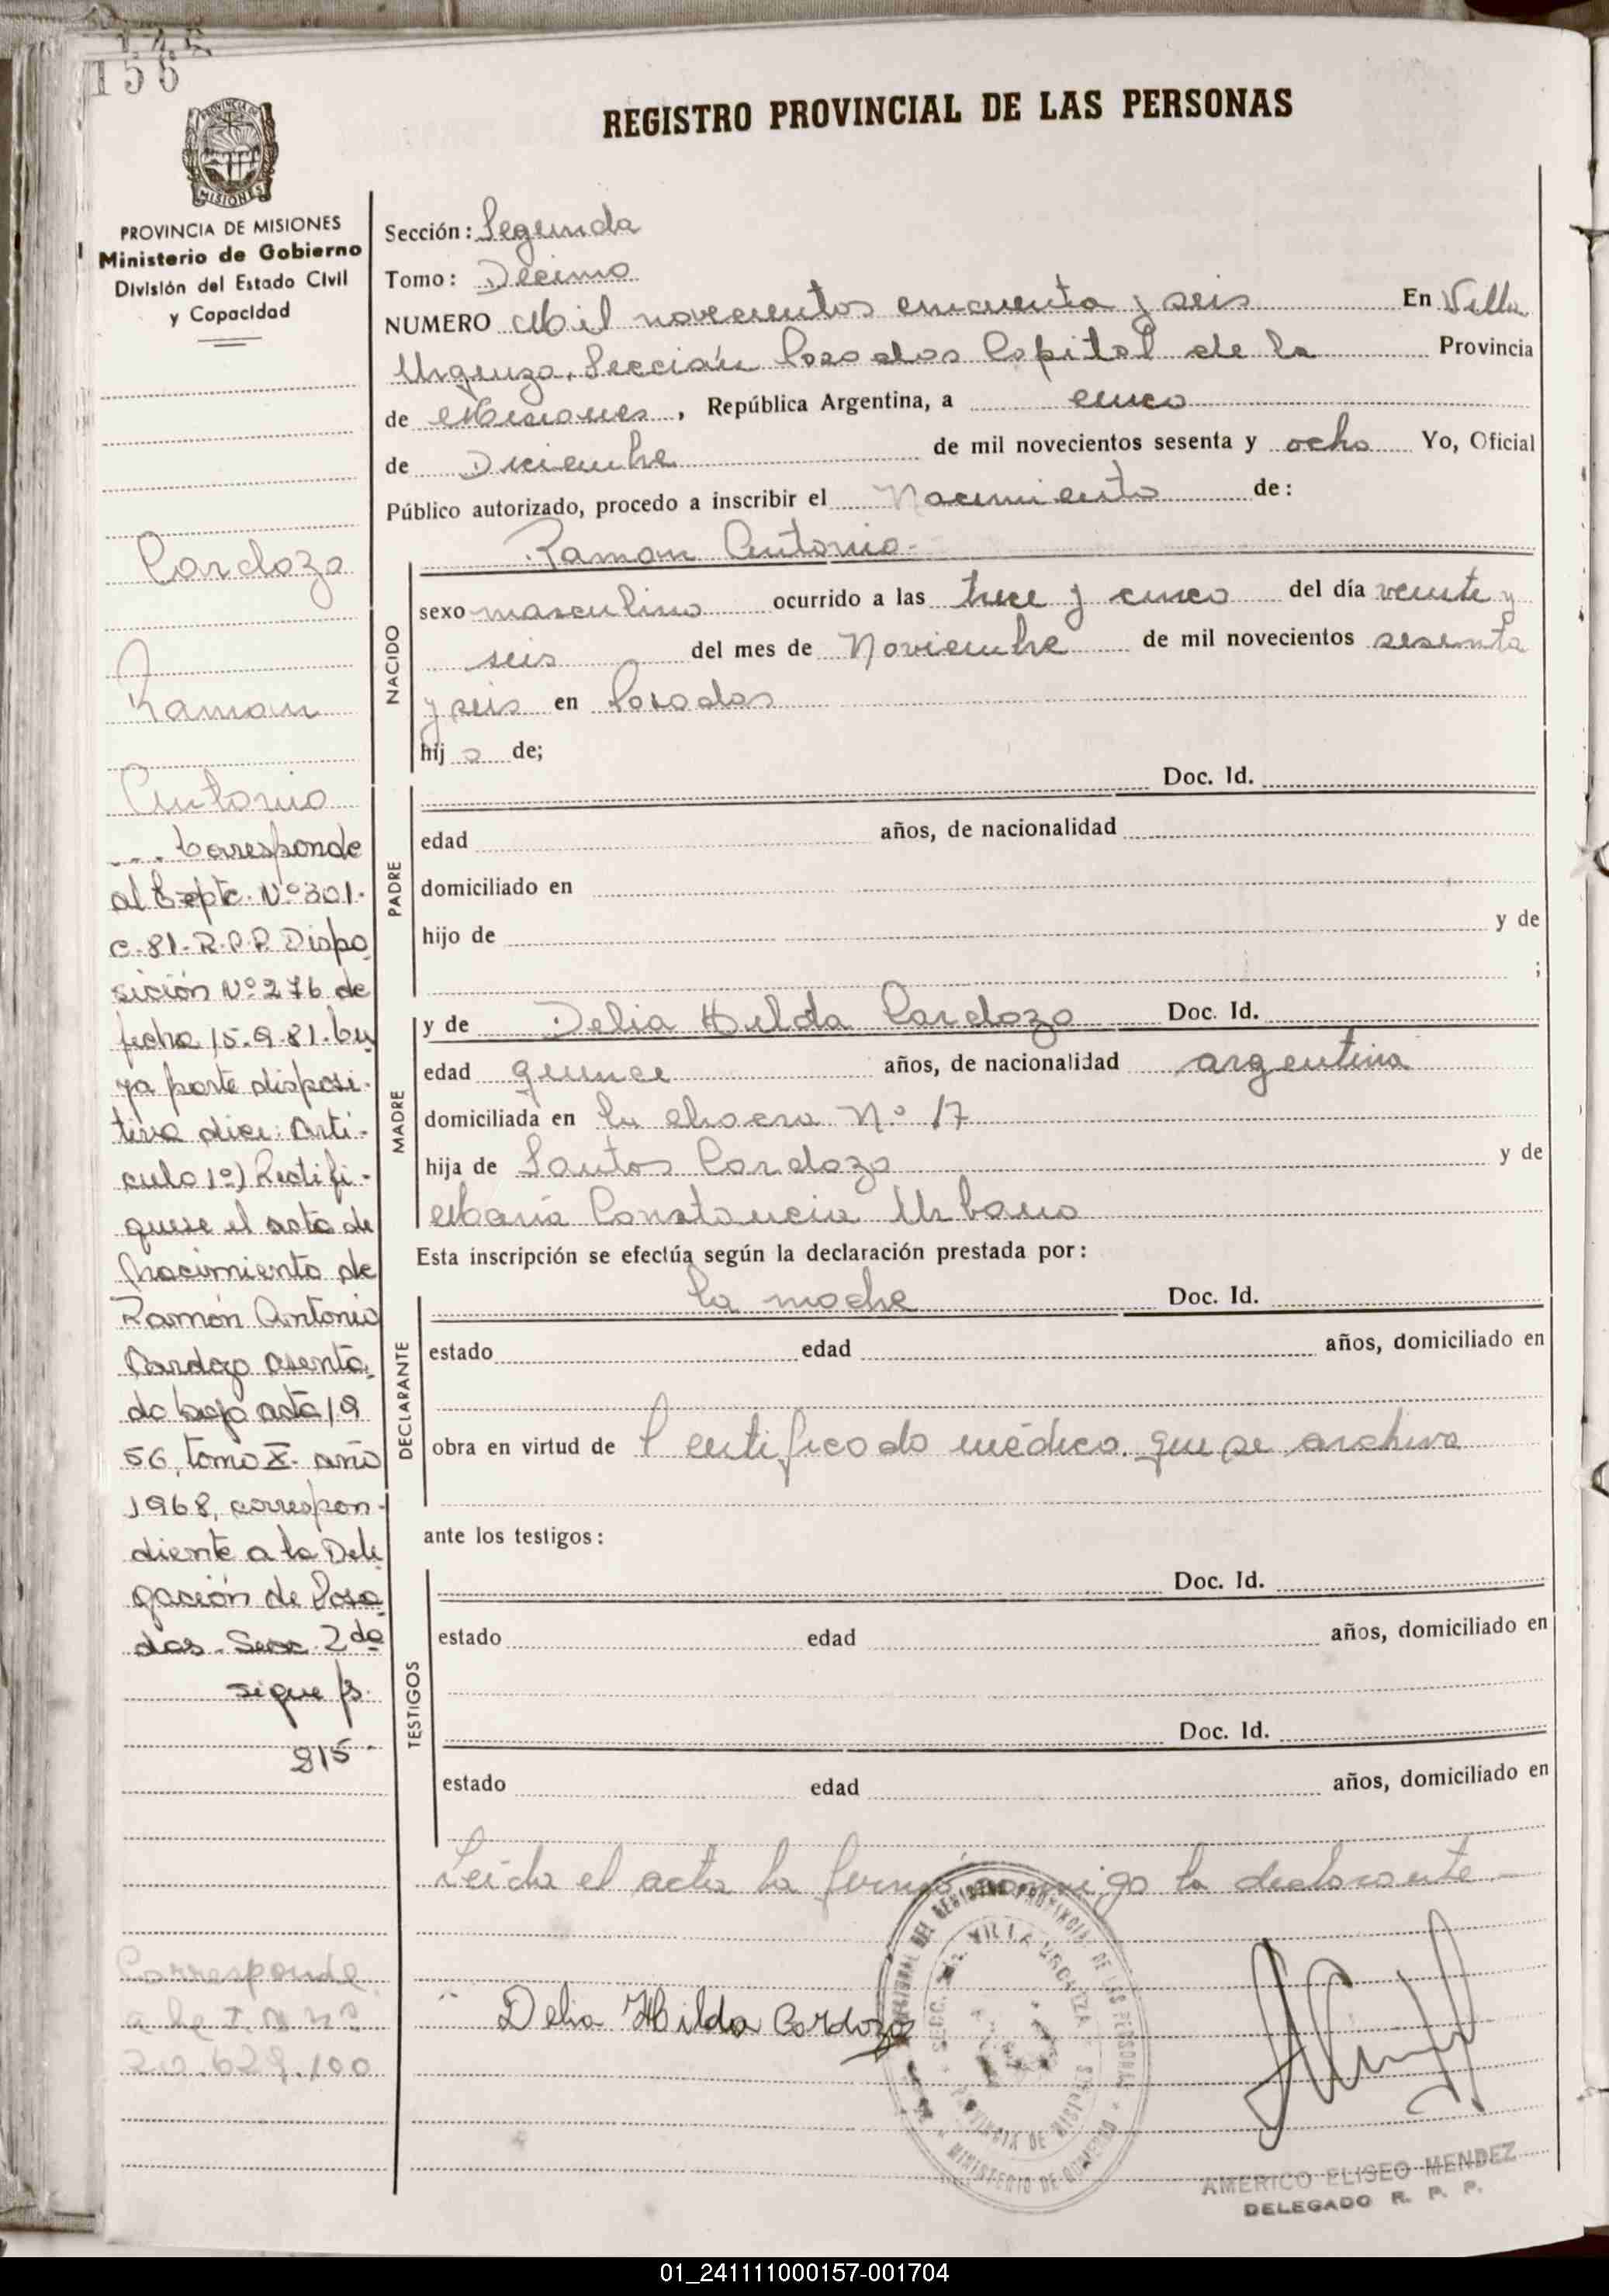 156
REGISTRO PROVINCIAL DE LAS PERSONAS
PROVINCIA DE MISIONES
Ministerio de Gobierno
División del Estado Civil
y Capacidad
Cardozo
Ramon
Antonio
Corresponde
al Expte. Nº 301.
C-81-R.P.P. Dispo
sición Nº 276 de
fecha 15.9.81. Cu
ya parte disposi-
tiva dice: Arti-
culo 1º) Rectifi-
quese el acta de
Nacimiento de
Ramón Antonio
Cardozo asenta
do bajo acta 19
56, tomo X. año
1968, correspon-
diente a la Dele
gación de Posa
das. Secc 2da
sigue fs.
215
Corresponde
a la
20.629.100
Sección: Segunda
Tomo: Decimo
NUMERO Mil novecientos cincuenta y seis En Villa
Urquiza, Sección Posadas Capital de la Provincia
de Misiones, República Argentina, a cinco
de Diciembre de mil novecientos sesenta y ocho Yo, Oficial
Público autorizado, procedo a inscribir el Nacimiento de:
Ramon Antonio
NACIDO
sexo masculino ocurrido a las trece y cinco del día veinte y
seis del mes de Noviembre de mil novecientos sesenta
y seis en Posadas
hij o de;
PADRE
Doc. Id.
edad años, de nacionalidad
domiciliado en
hijo de y de
;
MADRE
y de Delia Hilda Cardozo Doc. Id.
edad quince años, de nacionalidad argentina
domiciliada en la chacra Nº 17
hija de Santos Cardozo y de
Maria Constancia Urbano
Esta inscripción se efectúa según la declaración prestada por:
DECLARANTE
la madre Doc. Id.
estado edad años, domiciliado en
obra en virtud de Certificado médico que se archiva
ante los testigos:
TESTIGOS
Doc. Id.
estado edad años, domiciliado en
Doc. Id.
estado edad años, domiciliado en
Leida el acta la firmó conmigo la declarante.-
Delia Hilda Cardozo
DEL REGISTRO PROVINCIAL DE LAS PERSONAS
SECC. 2da. VILLA URQUIZA
PROVINCIA DE MISIONES
MINISTERIO DE GOBIERNO
AMERICO ELISEO MENDEZ
DELEGADO R. P. P.
01_241111000157-001704